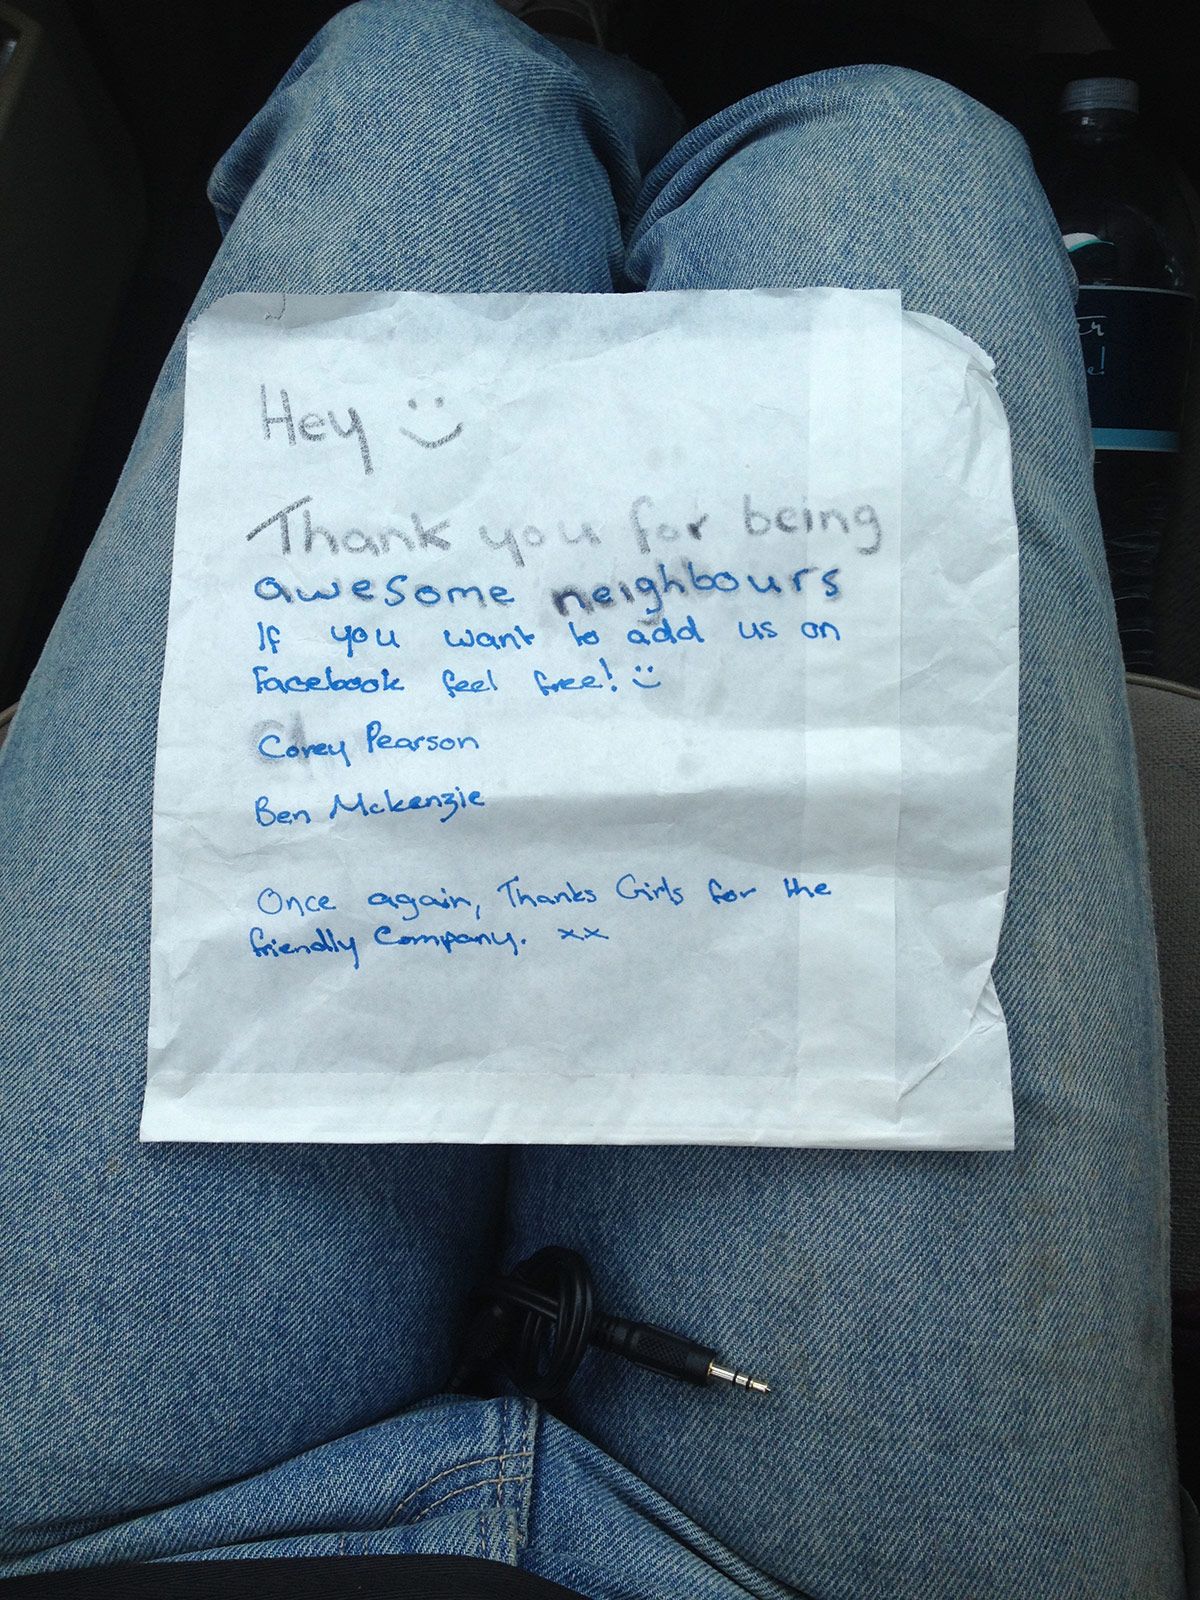 Hey :)
Thank you for being
awesome neighbours
If you want to add us on
Facebook feel free! :)
Corey Pearson
Ben Mckenzie
Once again, Thanks Girls for the
friendly Company. xx